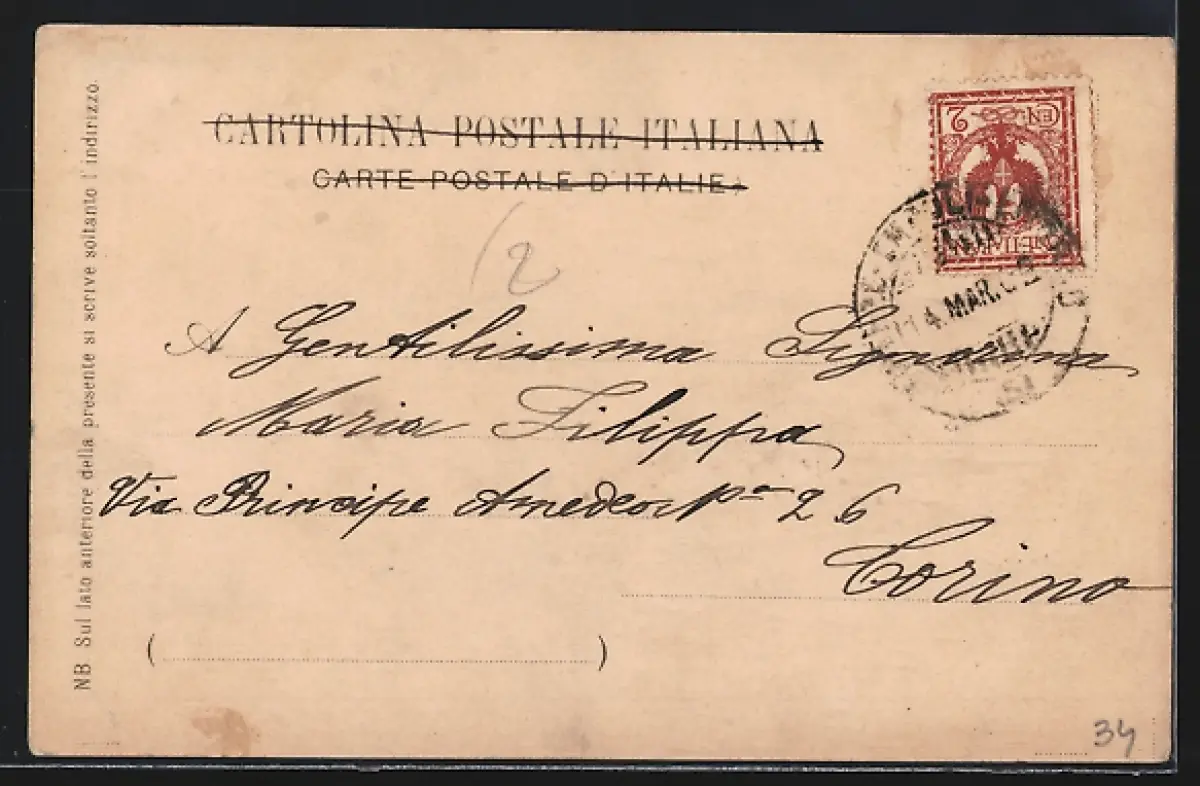 CARTOLINA POSTALE ITALIANA
CARTE POSTALE D'ITALIE
CEN 2
2
4 MAR. 02
A Gentilissima Signorina
Maria Filippa
Via Principe Amedeo Nº 26
Torino
( )
NB Sul lato anteriore della presente si scrive soltanto l'indirizzo.
34